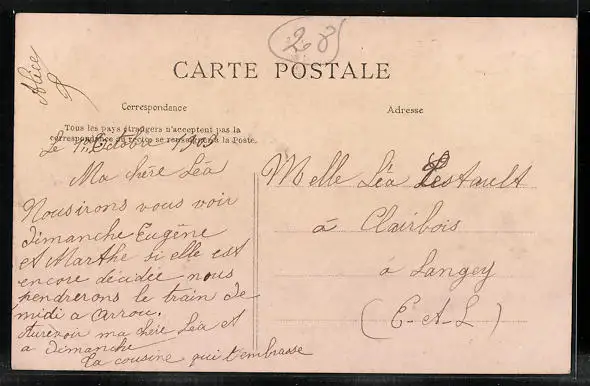 28
Alice
CARTE POSTALE
Correspondance
Adresse
Tous les pays étrangers n'acceptent pas la
correspondance au recto se renseigner à la Poste.
Le Octobre
Ma chère Léa
Nousirons vous voir
dimanche Eugène
et Marthe si elle est
encore décidée nous
pendrerons le train de
midi a Arrou.
Aurevoir ma chère Léa et
a Dimanche
La cousine qui t'embrasse
Melle Léa Lestault
à Clairbois
à Langey
(E-et-L)